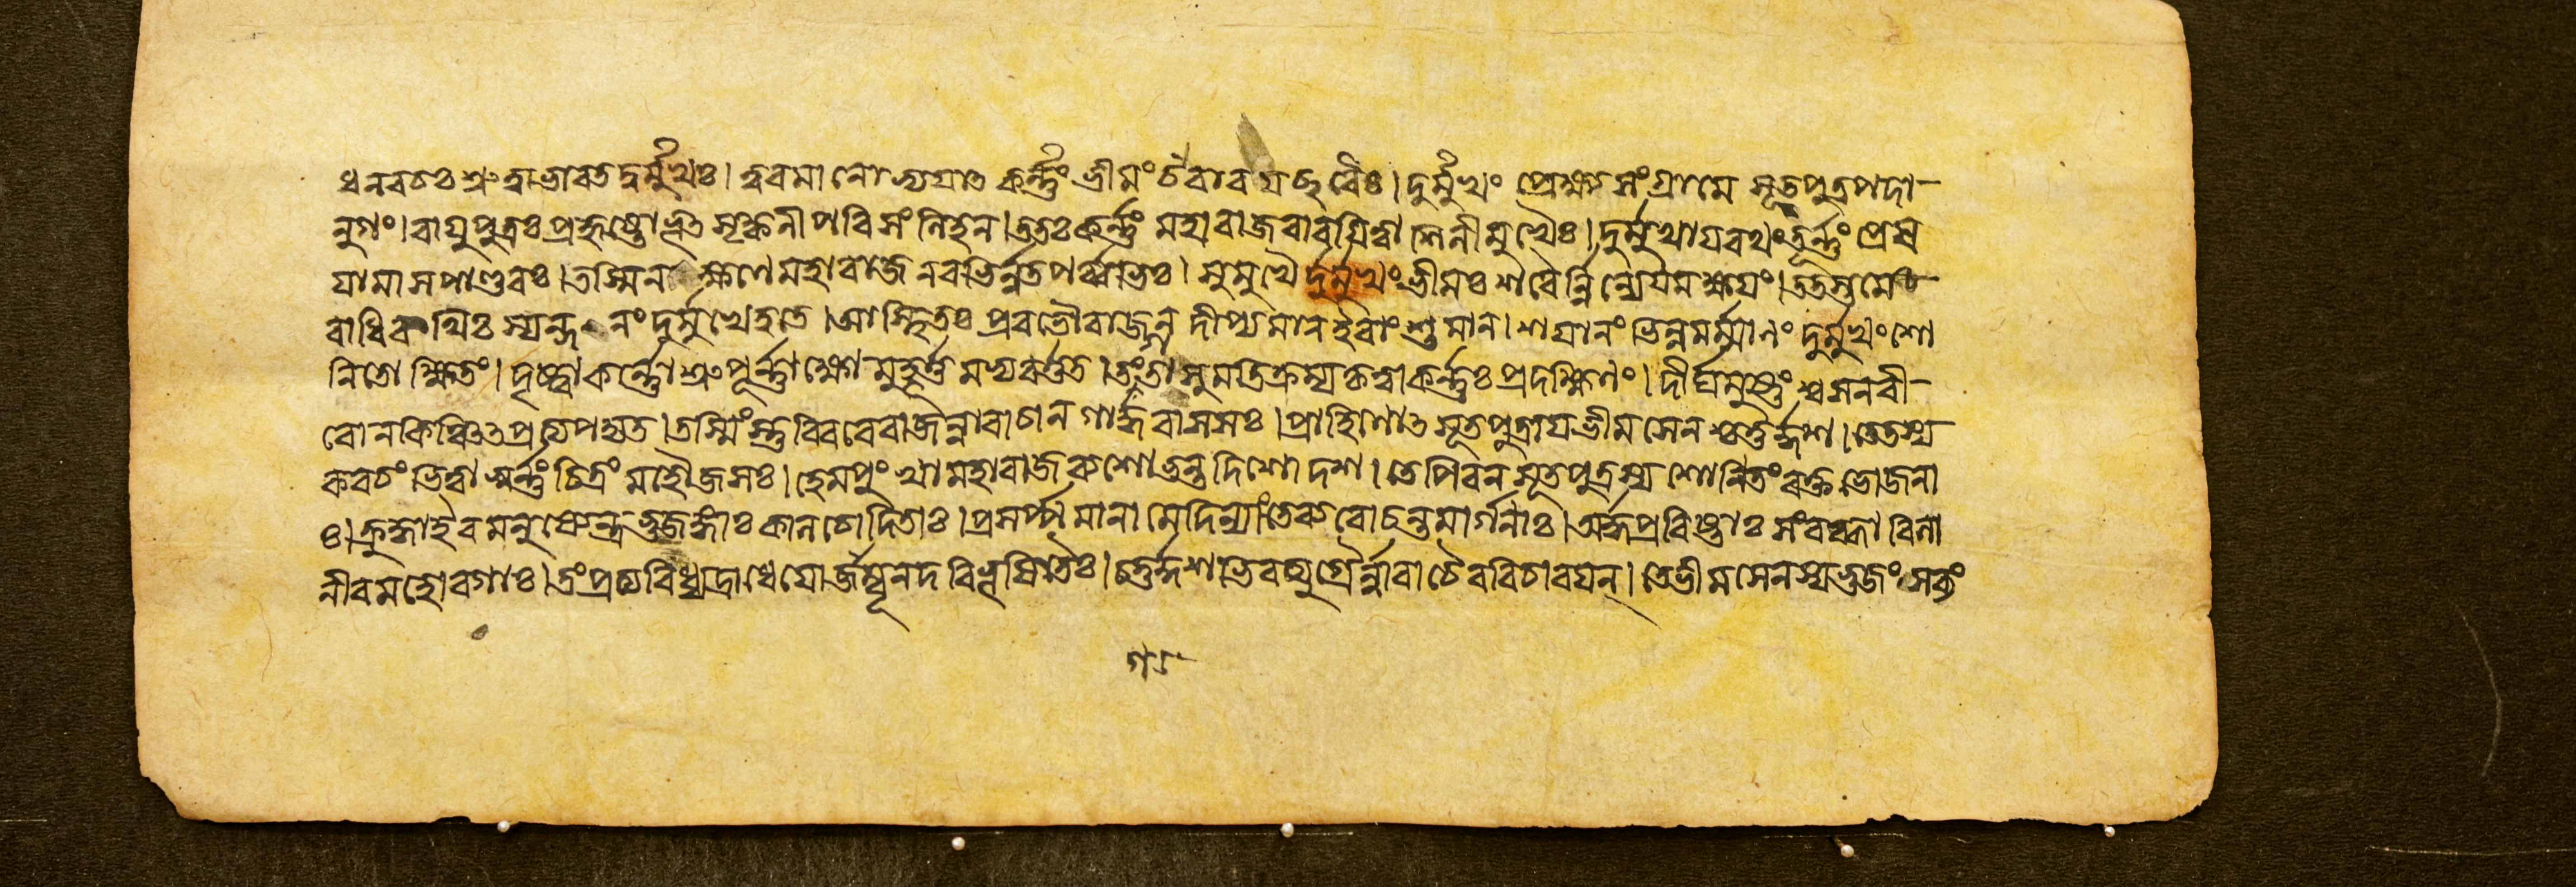 ধনবচঃ শ্রুত্বা ভারত দুর্ম্মুখঃ। ত্বরমানোভ্যযাৎ কর্ণ্ণং ভীমং চৈবারযচ্ছরৈঃ। দুর্ম্মুখং প্রেক্ষ্য সংগ্রামে সূতপুত্রপদা-
নুগং। বাযুপুত্রঃ প্রহৃষ্টোভূৎ সৃক্কনী পরিসংলিহন। ততঃ কর্ণ্ণং মহারাজ বারযিত্বা শিলীমুখৈঃ। দুর্ম্মুখায রথং তূর্ণ্ণং প্রেষ
যামাস পাণ্ডবঃ। তস্মিন ক্ষণে মহারাজ নবভির্ন্নতপর্ব্বভিঃ। সুমুখৈ র্দুর্ম্মুখং ভীমঃ শরৈর্ন্নিন্যে যমক্ষযং। ততস্তমে-
বাধিরথিঃ স্যন্দনং দুর্ম্মুখে হতে। আস্থিতঃ প্রবভৌ রাজন দীপ্যমান ইবাংশুমান। শযানং ভিন্নমর্ম্মানং দুর্ম্মুখং শো
নিতোক্ষিতং। দৃষ্ট্বা কর্ণ্ণোশ্রুপূর্ণ্ণাক্ষো মুহূর্ত্তমভ্যবর্ত্তত। তং গতাসুমতিক্রম্য কৃত্বা কর্ণ্ণঃ প্রদক্ষিণং। দীর্ঘমুষ্ণং শ্বসন বী-
রো ন কিঞ্চিৎ প্রত্যপদ্যত। তস্মিংস্তু বিবরে রাজন্নারাচান গার্দ্ধ্রবাসসঃ। প্রাহিণোৎ সূতপুত্রায ভীমসেনশ্চতুর্দ্দশ। তে তস্য
কবচং ভিত্বা স্বর্ণ্ণচিত্রং মহৌজসঃ। হেমপুংখা মহারাজ ব্যশোভন্ত দিশো দশ। তে পিবন সূতপুত্রস্য শোনিতং রক্তভোজনা
ঃ। ক্রুদ্ধা ইব মনুষ্যেন্দ্র ভুজঙ্গাঃ কালচোদিতাঃ। প্রসর্প্পমানা মেদিন্যাং তে ব্যরোচন্ত মার্গনাঃ। অর্দ্ধপ্রবিষ্টাঃ সংরব্ধা বিলা
নীব মহোরগাঃ। তং প্রত্যবিধ্যদ্রাধেযো র্জাম্বূনদবিভূষিতৈঃ। চতুর্দ্দশভিরত্যুগ্রৈর্ন্নারাচৈরবিচারযন্। তে ভীমসেনস্য ভুজং সব্যং